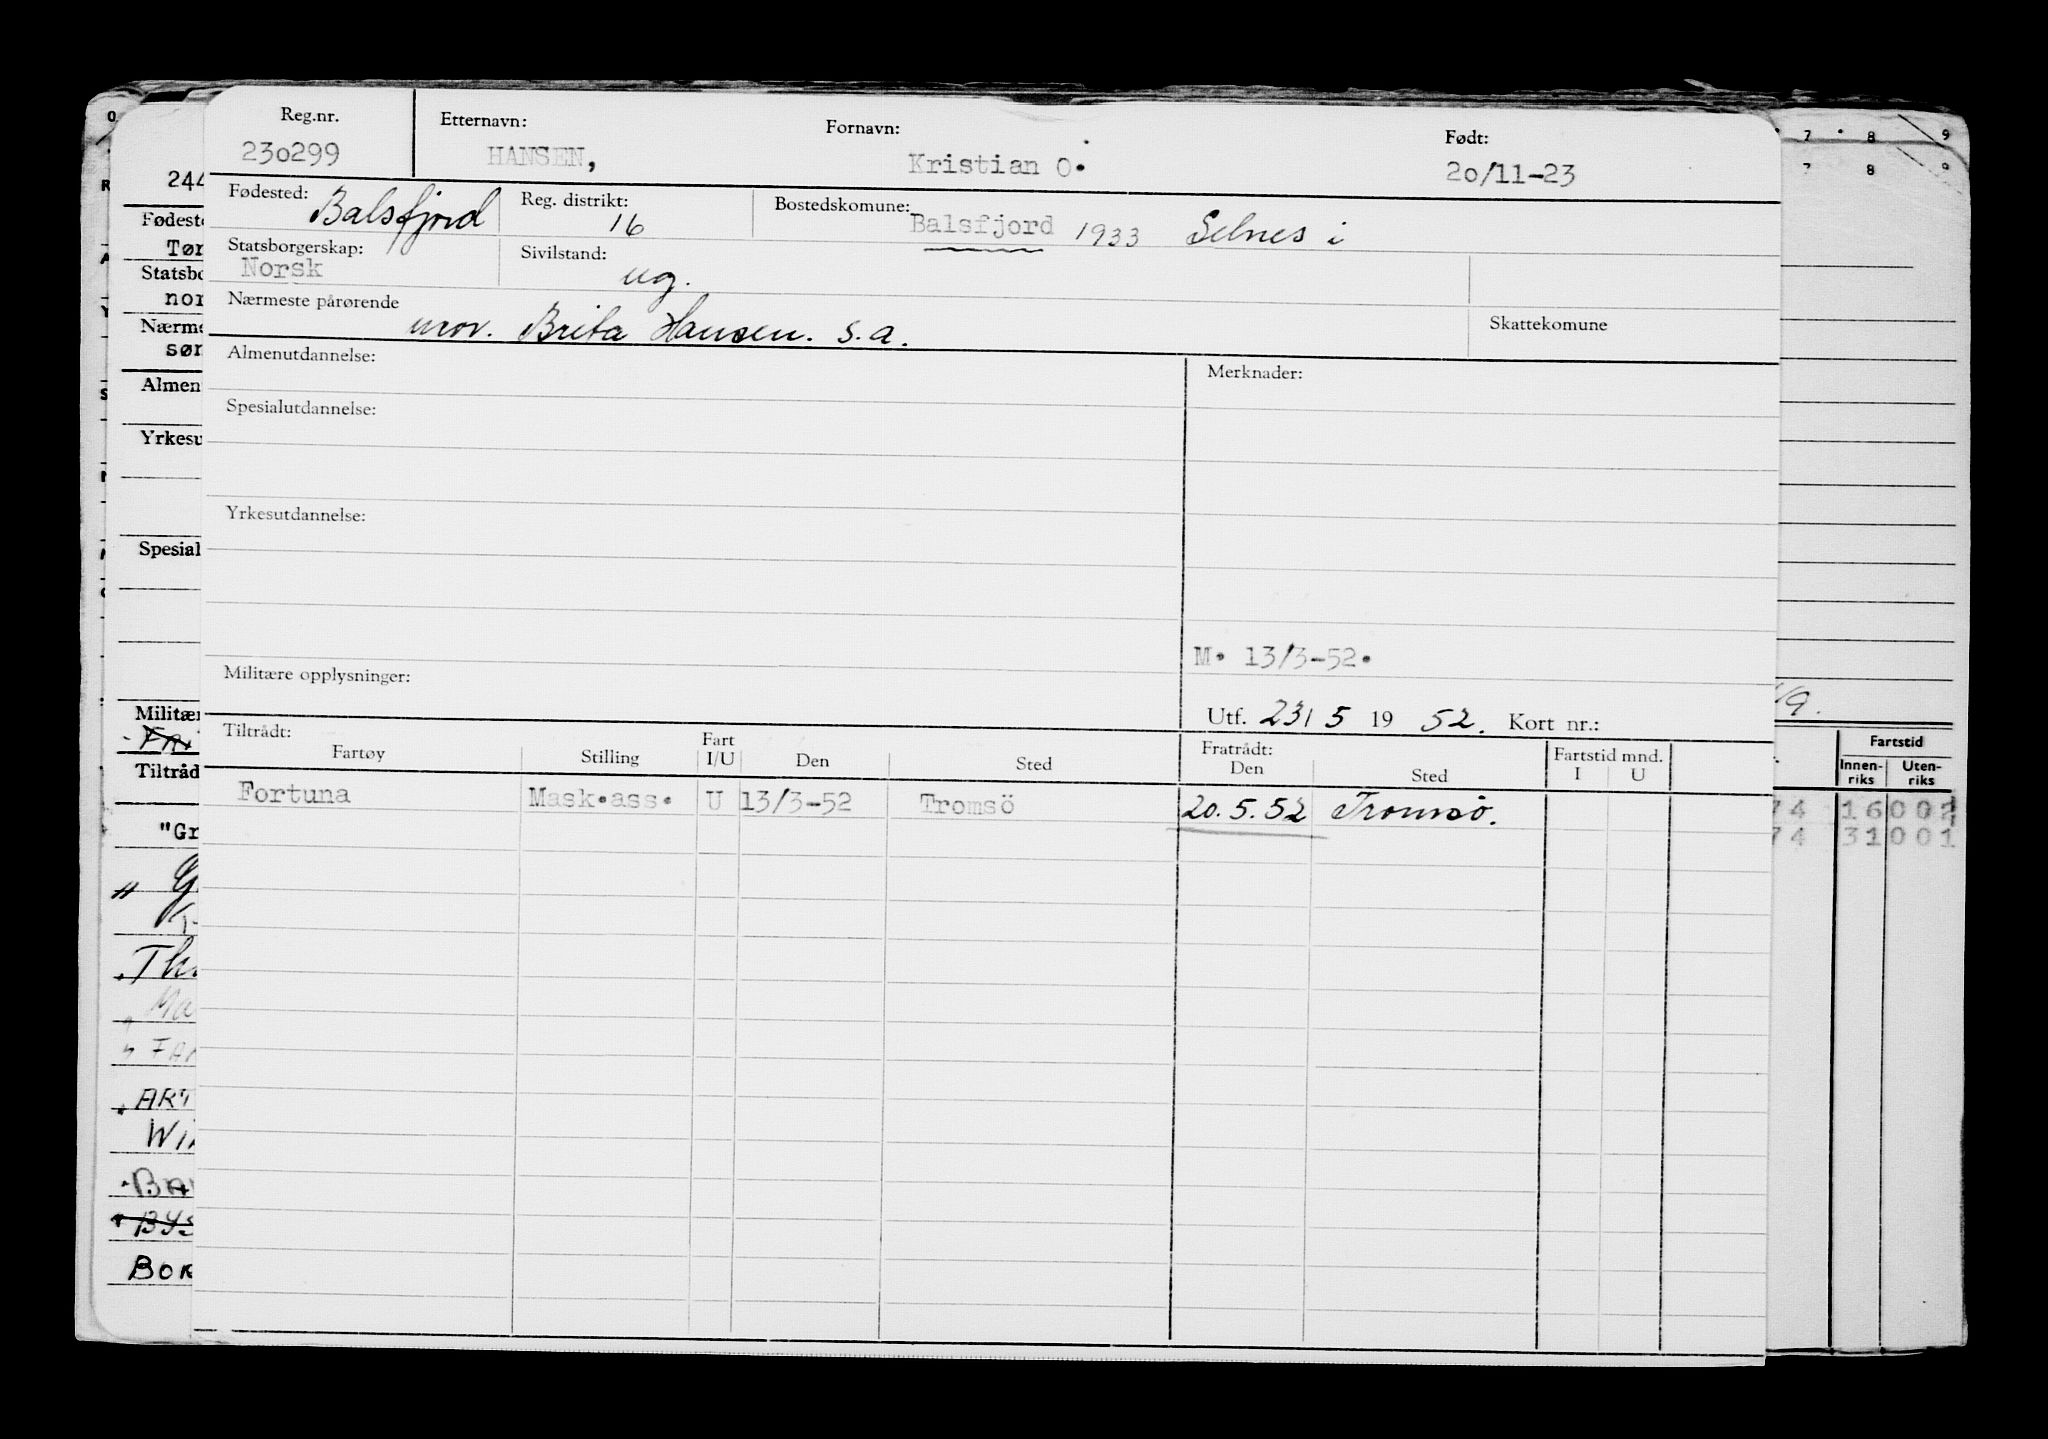 Reg.nr. Etternavn: Fornavn: Født:
230299 HANSEN, Kristian O. 20/11-23
Fødested: Balsfjord Reg. distrikt: 16 Bostedskomune: Balsfjord 1933 Selnes i
Statsborgerskap: Norsk Sivilstand: ug.
Nærmeste pårørende mor. Brita Hansen. s.a. Skattekomune
Almenutdannelse: Merknader:
Spesialutdannelse:
Yrkesutdannelse:
M. 13/3-52.
Militære opplysninger:
Utf. 23/5 19 52. Kort nr.:
Tiltrådt: Fratrådt: Fartstid mnd.
Fartøy Stilling Fart I/U Den Sted Den Sted I U
Fortuna Mask.ass. U 13/3-52 Tromsö 20.5.52 Tromsö.
244
Fødeste
Tør
Statsbo
nor
Nærme
søn
Almen
Yrkesu
Spesial
Militær
Tiltråd
"Gr
ART
BOR
7 8 9
7 8 9
Fartstid
Innen-riks Uten-riks
74 16 002
74 31 001